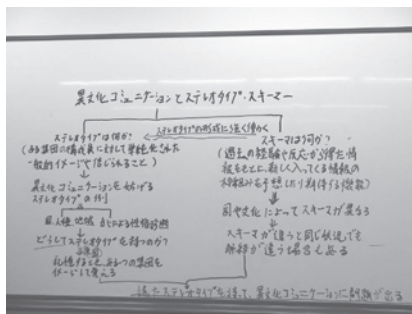 異文化コミュニケーションとステレオタイプ・スキーマー
ステレオタイプの形成に強く働く
ステレオタイプは何か?
(ある集団の構成員に対して単純化された
一般的イメージで信じられること)
異文化コミュニケーションを妨げる
ステレオタイプの例
血人種、地域 などによる性格診断
どうしてステレオタイプを持つのか?
記憶するとき、ある1つの集団を
イメージして覚える
スキーマは何か?
(過去の経験や反応から得た情
報をもとに、新しく入ってくる情報の
枠組みを予想したり期待する機能)
国や文化によってスキーマが異なる
スキーマが違うと同じ状況でも
解釈が違う場合もある
違ったステレオタイプを持って、異文化コミュニケーションに問題が出る